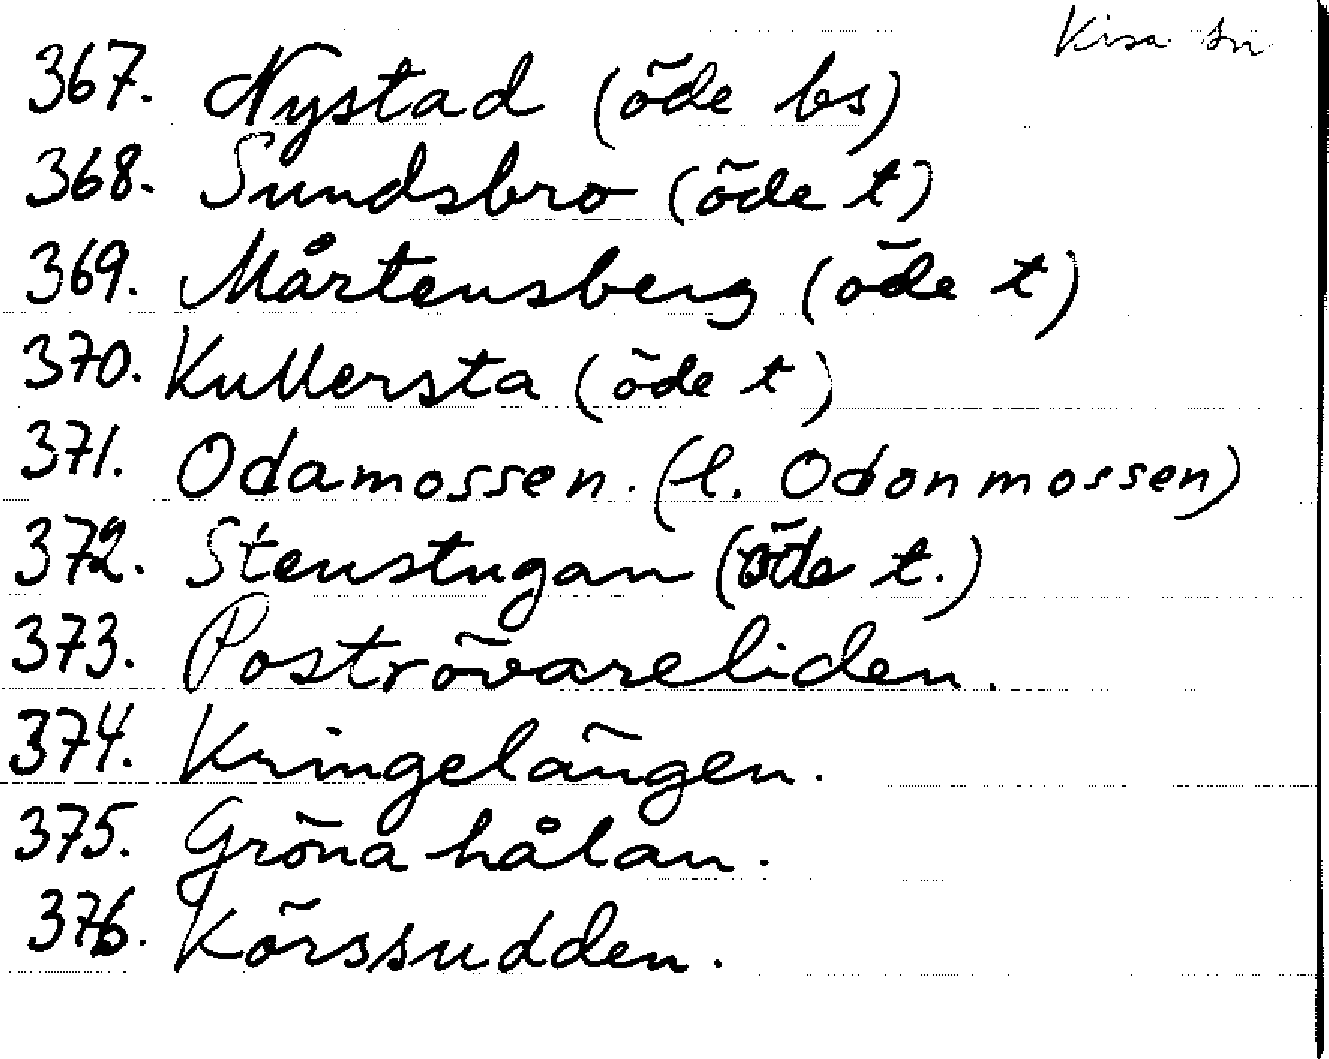 Kisa sn
367. Nystad (öde bs)
368. Sundsbro (öde t)
369. Mårtensberg (öde t)
370. Kullersta (öde t)
371. Odamossen. (l. Odonmossen)
372. Stenstugan (öde t.)
373. Poströvareliden.
374. Kringelängen.
375. Gröna hålan.
376. Körssudden.